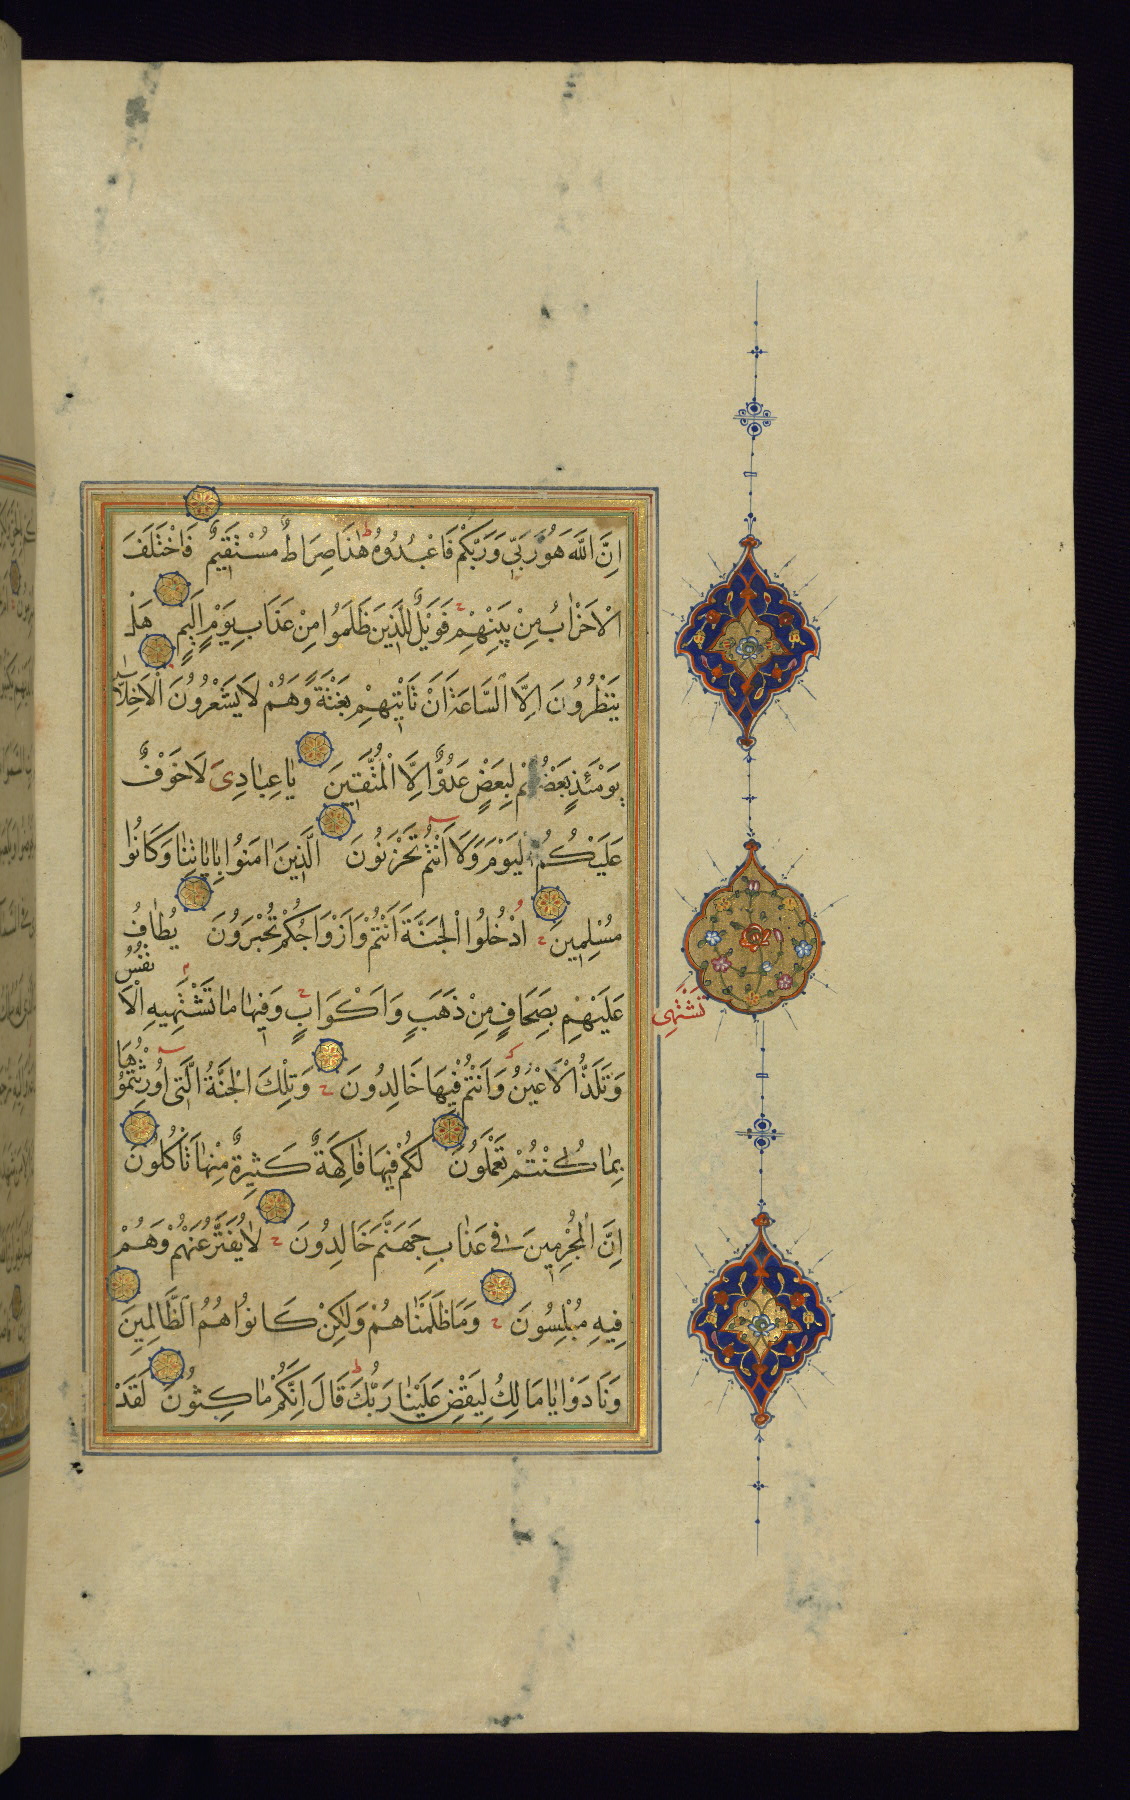 اِنَّ اللَّهَ هُوَ رَبِّي وَرَبُّكُمْ فَاعْبُدُوهُ هٰذَا صِرَاطٌ مُسْتَقِيمٌ فَاخْتَلَفَ
الْاَحْزَابُ مِنْ بَيْنِهِمْ فَوَيْلٌ لِلَّذِينَ ظَلَمُوا مِنْ عَذَابِ يَوْمٍ اَلِيمٍ هَلْ
يَنْظُرُونَ اِلَّا السَّاعَةَ اَنْ تَاْتِيَهُمْ بَغْتَةً وَهُمْ لَا يَشْعُرُونَ اَلْاَخِلَّاءُ
يَوْمَئِذٍ بَعْضُهُمْ لِبَعْضٍ عَدُوٌّ اِلَّا الْمُتَّقِينَ يَا عِبَادِىَ لَا خَوْفٌ
عَلَيْكُمُ الْيَوْمَ وَلَا اَنْتُمْ تَحْزَنُونَ الَّذِينَ اٰمَنُوا بِاٰيَاتِنَا وَكَانُوا
مُسْلِمِينَ اُدْخُلُوا الْجَنَّةَ اَنْتُمْ وَاَزْوَاجُكُمْ تُحْبَرُونَ يُطَافُ
عَلَيْهِمْ بِصِحَافٍ مِنْ ذَهَبٍ وَاَكْوَابٍ وَفِيهَا مَا تَشْتَهِيهِ الْاَنْفُسُ
تَشْتَهِى
وَتَلَذُّ الْاَعْيُنُ وَاَنْتُمْ فِيهَا خَالِدُونَ وَتِلْكَ الْجَنَّةُ الَّتِى اُورِثْتُمُوهَا
بِمَا كُنْتُمْ تَعْمَلُونَ لَكُمْ فِيهَا فَاكِهَةٌ كَثِيرَةٌ مِنْهَا تَاْكُلُونَ
اِنَّ الْمُجْرِمِينَ فِى عَذَابِ جَهَنَّمَ خَالِدُونَ لَا يُفَتَّرُ عَنْهُمْ وَهُمْ
فِيهِ مُبْلِسُونَ وَمَا ظَلَمْنَاهُمْ وَلٰكِنْ كَانُوا هُمُ الظَّالِمِينَ
وَنَادَوْا يَا مَالِكُ لِيَقْضِ عَلَيْنَا رَبُّكَ قَالَ اِنَّكُمْ مَاكِثُونَ لَقَدْ